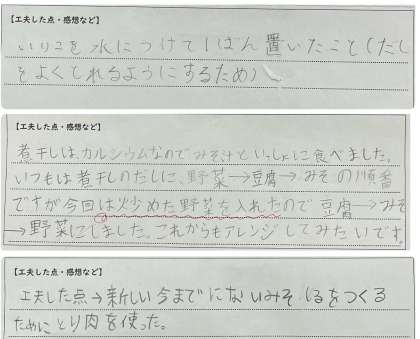 【工夫した点・感想など】
いりこを水につけて1ばん置いたこと(だし
をよくとれるようにするため)
【工夫した点・感想など】
煮干しは、カルシウムなのでみそ汁といっしょに食べました。
いつもは煮干しのだしに、野菜→豆腐→みその順番
ですが今回は炒めた野菜を入れたので豆腐→みそ
→野菜にしました。これからもアレンジしてみたいです。
【工夫した点・感想など】
工夫した点→新しい今までにないみそしるをつくる
ためにとり肉を使った。